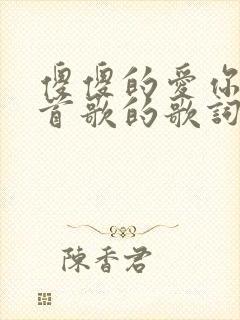 傻傻的愛你
首歌的歌詞
陳香君